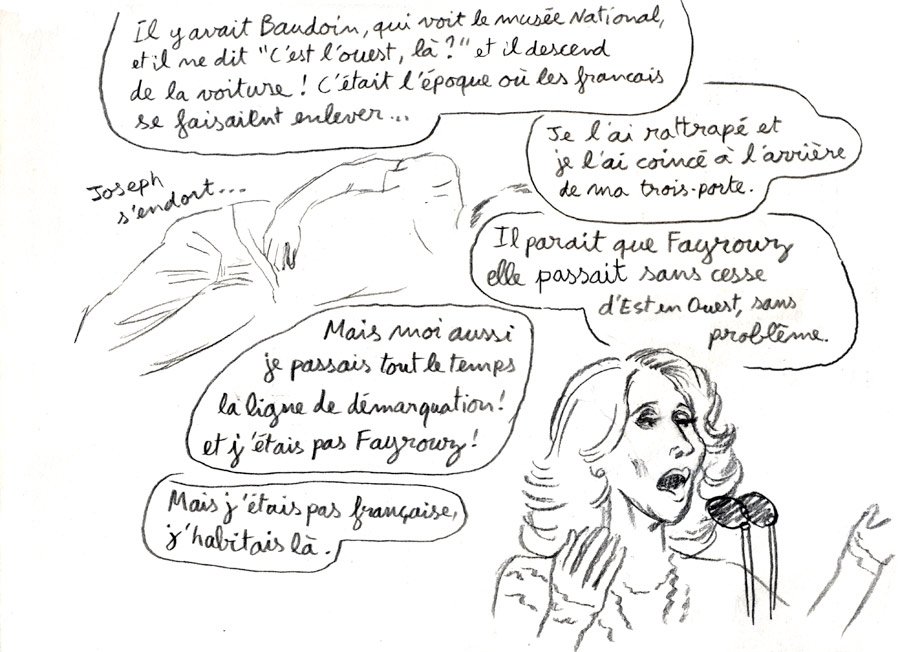 Il y avait Baudoin, qui voit le musée National,
et il me dit "C'est l'ouest, là ?" et il descend
de la voiture ! C'était l'époque où les francais
se faisaient enlever...
Je l'ai rattrapé et
je l'ai coincé à l'arrière
de ma trois-porte.
Joseph
s'endort...
Il parait que Fayrouz
elle passait sans cesse
d'Est en Ouest, sans
problème.
Mais moi aussi
je passais tout le temps
la ligne de démarquation !
et j'étais pas Fayrouz !
Mais j'étais pas française,
j'habitais là.